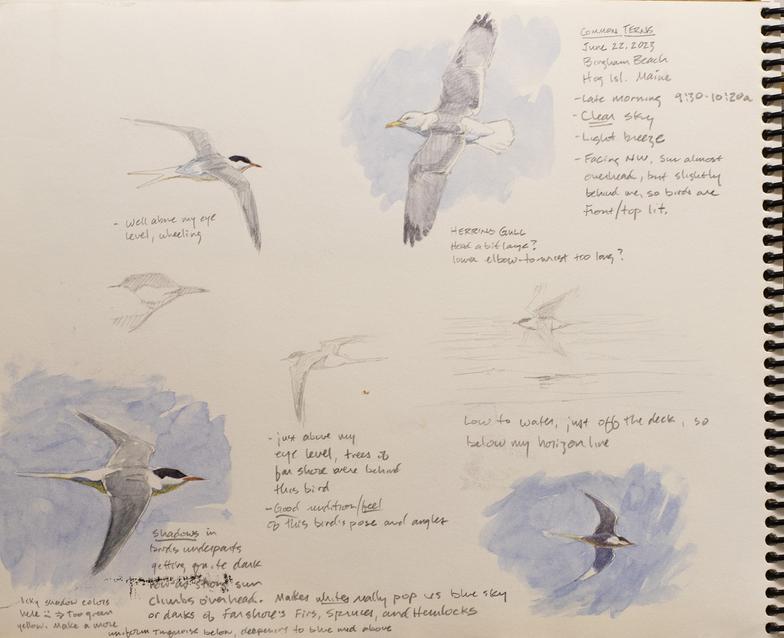 COMMON TERNS
June 22, 2023
Bingham Beach
Hog Isl. Maine
- Late morning 9:30-10:20a
- Clear sky
- Light breeze
- Facing NW, sun almost
overhead, but slightly
behind me, so birds are
front/top lit.
- Well above my eye
level, wheeling
HERRING GULL
Head a bit large?
lower elbow-to-wrist too long?
Low to water, just off the deck, so
below my horizon line
- just above my
eye level, trees of
far shore were behind
this bird
- Good rendition/feel
of this bird's pose and angles
Shadows in
birds underparts
getting quite dark
sun
climbs overhead. Makes whites really pop vs blue sky
or darks of far shore's Firs, Spruces, and Hemlocks
Icky shadow colors
here :: → too green
yellow. Make a more
uniform turquoise below, deepening to blue mid above